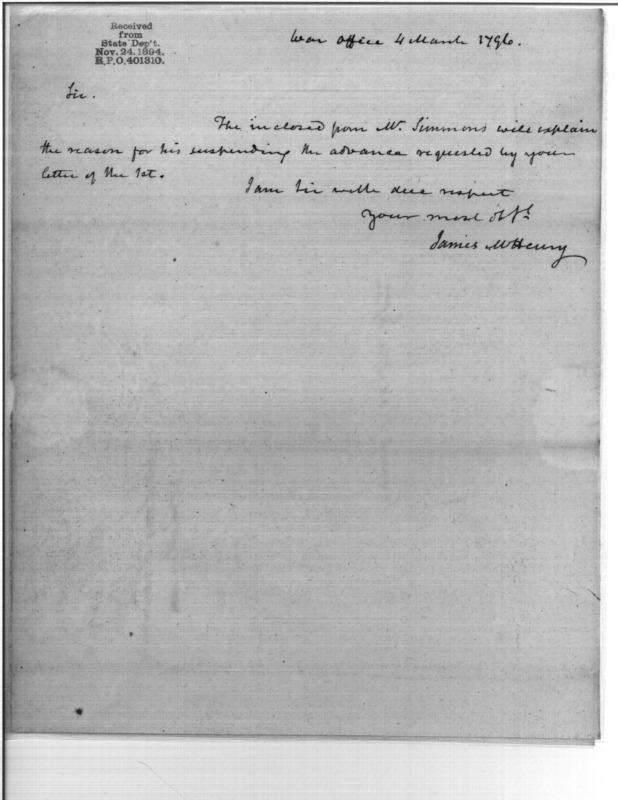 Received
from
State Dep't.
Nov. 24. 1894.
R.P.O. 401310.
War office 4 March 1796.
Sir.
The inclosed from Mr. Simmons will explain
the reason for his suspending the advance requested by your
letter of the 1st.
I am Sir with due respect
your most obt.
James McHenry